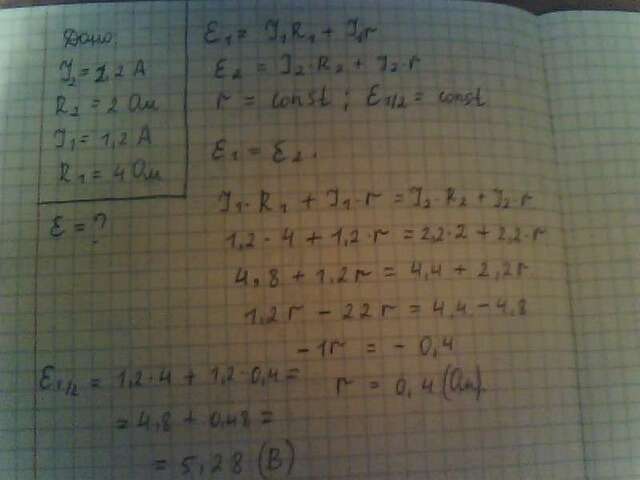 Дано:
I₂ = 2,2 А
R₂ = 2 Ом
I₁ = 1,2 А
R₁ = 4 Ом
ε = ?
ε₁ = I₁R₁ + I₁r
ε₂ = I₂·R₂ + I₂·r
r = const ; ε₁/₂ = const
ε₁ = ε₂.
I₁·R₁ + I₁·r = I₂·R₂ + I₂·r
1,2·4 + 1,2·r = 2,2·2 + 2,2·r
4,8 + 1,2r = 4,4 + 2,2r
1,2r - 22r = 4,4 - 4,8
-1r = - 0,4
r = 0,4 (Ом)
ε₁/₂ = 1,2·4 + 1,2·0,4 =
= 4,8 + 0,48 =
= 5,28 (В)